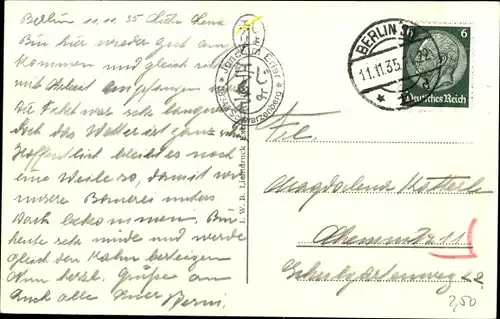 Berlin 11.11.35 Liebe Lena
Bin hier wieder gut an
kommen und gleich
mit Arbeit angefangen
Die Fahrt war sehr lang
doch das Wetter ist ganz
Hoffentlich bleibt es noch
eine Weile so, damit wir
unsere Bauerei unters
Dach bekommen. Bin
heute sehr müde und werde
gleich den Kahn besteigen
Nun herzl. Grüße an
Euch alle Euer Berni.
I. W. B. Lichtdruck
Schwarzenberg
BERLIN
11.11.35
6
Deutsches Reich
Frl.
Magdalena
Chemnitz 11
Schulgartenweg 22
2,50